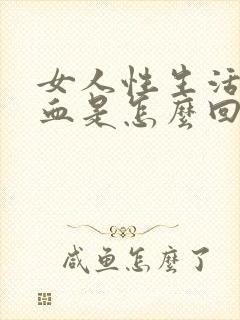 女人性生活
血是怎麼回
咸鱼怎麼了